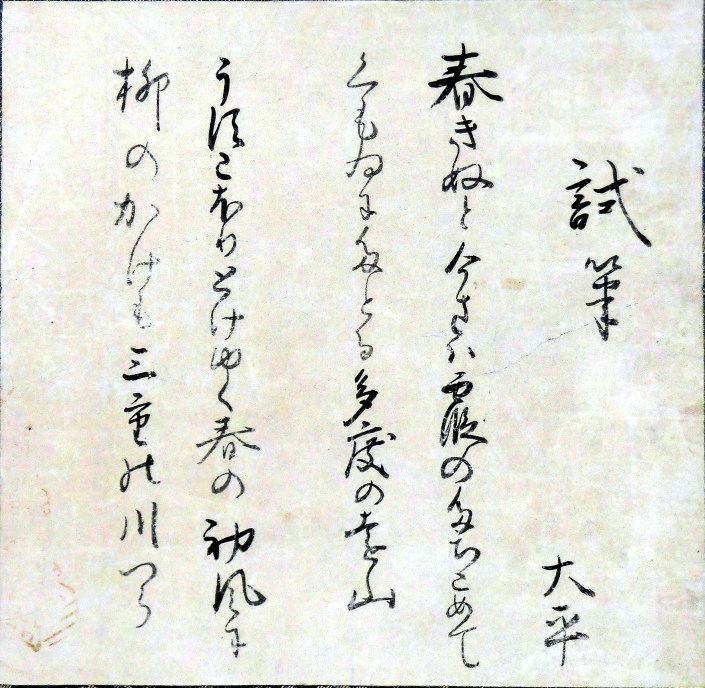 試筆
大平
春きぬと今さハ霞のたちこめて
くもゐにたとる多度の遠山
うすこほりとけゆく春の初風に
柳のかけも三重の川つら